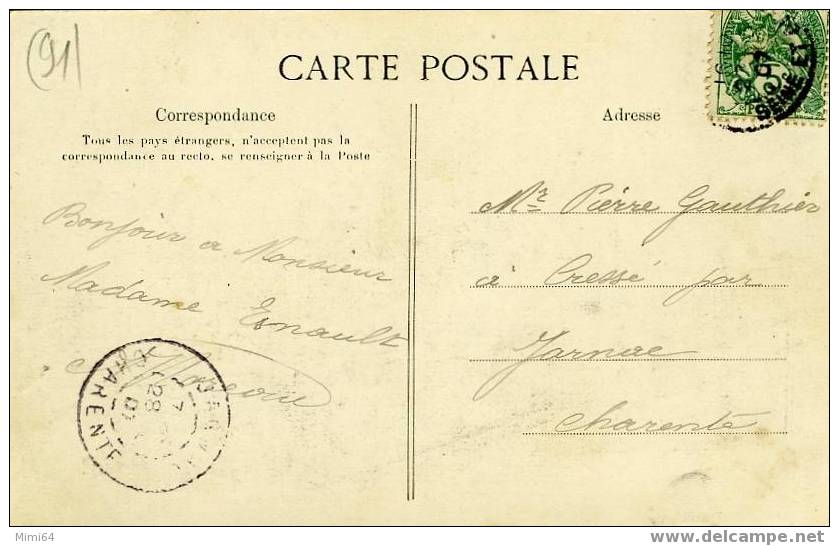 (91)
CARTE POSTALE
Correspondance
Tous les pays étrangers, n'acceptent pas la
correspondance au recto, se renseigner à la Poste
Bonjour a Monsieur
Madame Esnault
Adresse
Mr Pierre Gauthier
à Cressé par
Jarnac
Charente
SEINE ET
JARNAC
7
28
07
CHARENTE
Mimi64
www.delcampe.net